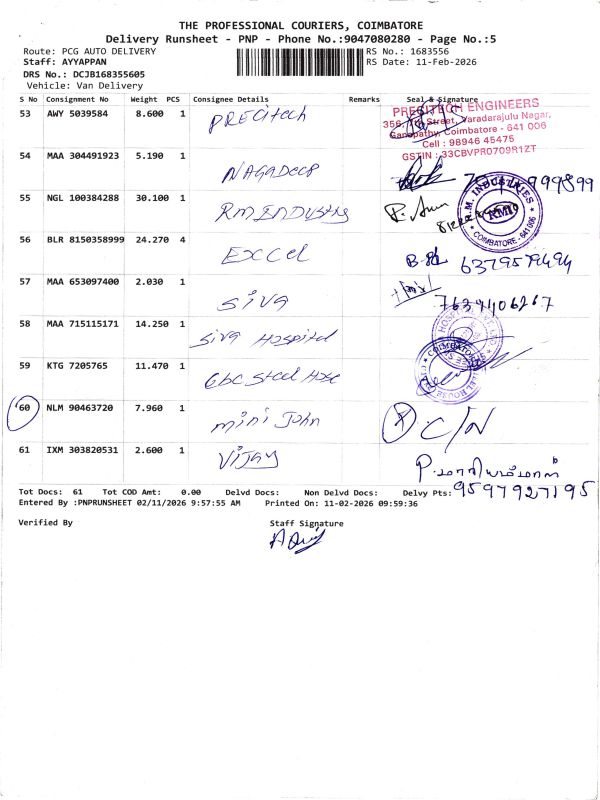 THE PROFESSIONAL COURIERS, COIMBATORE
Delivery Runsheet - PNP - Phone No.:9047080280 - Page No.:5
Route: PCG AUTO DELIVERY
RS No.: 1683556
Staff: AYYAPPAN
RS Date: 11-Feb-2026
DRS No.: DCJB168355605
Vehicle: Van Delivery
S No Consignment No Weight PCS Consignee Details Remarks Seal & Signature
53 AWY 5039584 8.600 1 PRECitech
PRECITECH ENGINEERS
Street, Varadarajulu Nagar,
Ganapathy, Coimbatore - 641 006
Cell : 98946 45475
GSTIN : 33CBVPR0709R1ZT
54 MAA 304491923 5.190 1 NAGADEEP
55 NGL 100384288 30.100 1 RM INDUSTRIES
R.M. INDUSTRIES
RMI
COIMBATORE - 641 006
56 BLR 8150358999 24.270 4 EXCEL
57 MAA 653097400 2.030 1 SIVA
58 MAA 715115171 14.250 1 Siva Hospital
59 KTG 7205765 11.470 1 Gbc Steel Hose
60 NLM 90463720 7.960 1 mini John
C/N
61 IXM 303820531 2.600 1 VIJAY
9597927195
Tot Docs: 61 Tot COD Amt: 0.00 Delvd Docs: Non Delvd Docs: Delvy Pts:
Entered By :PNPRUNSHEET 02/11/2026 9:57:55 AM Printed On: 11-02-2026 09:59:36
Verified By
Staff Signature